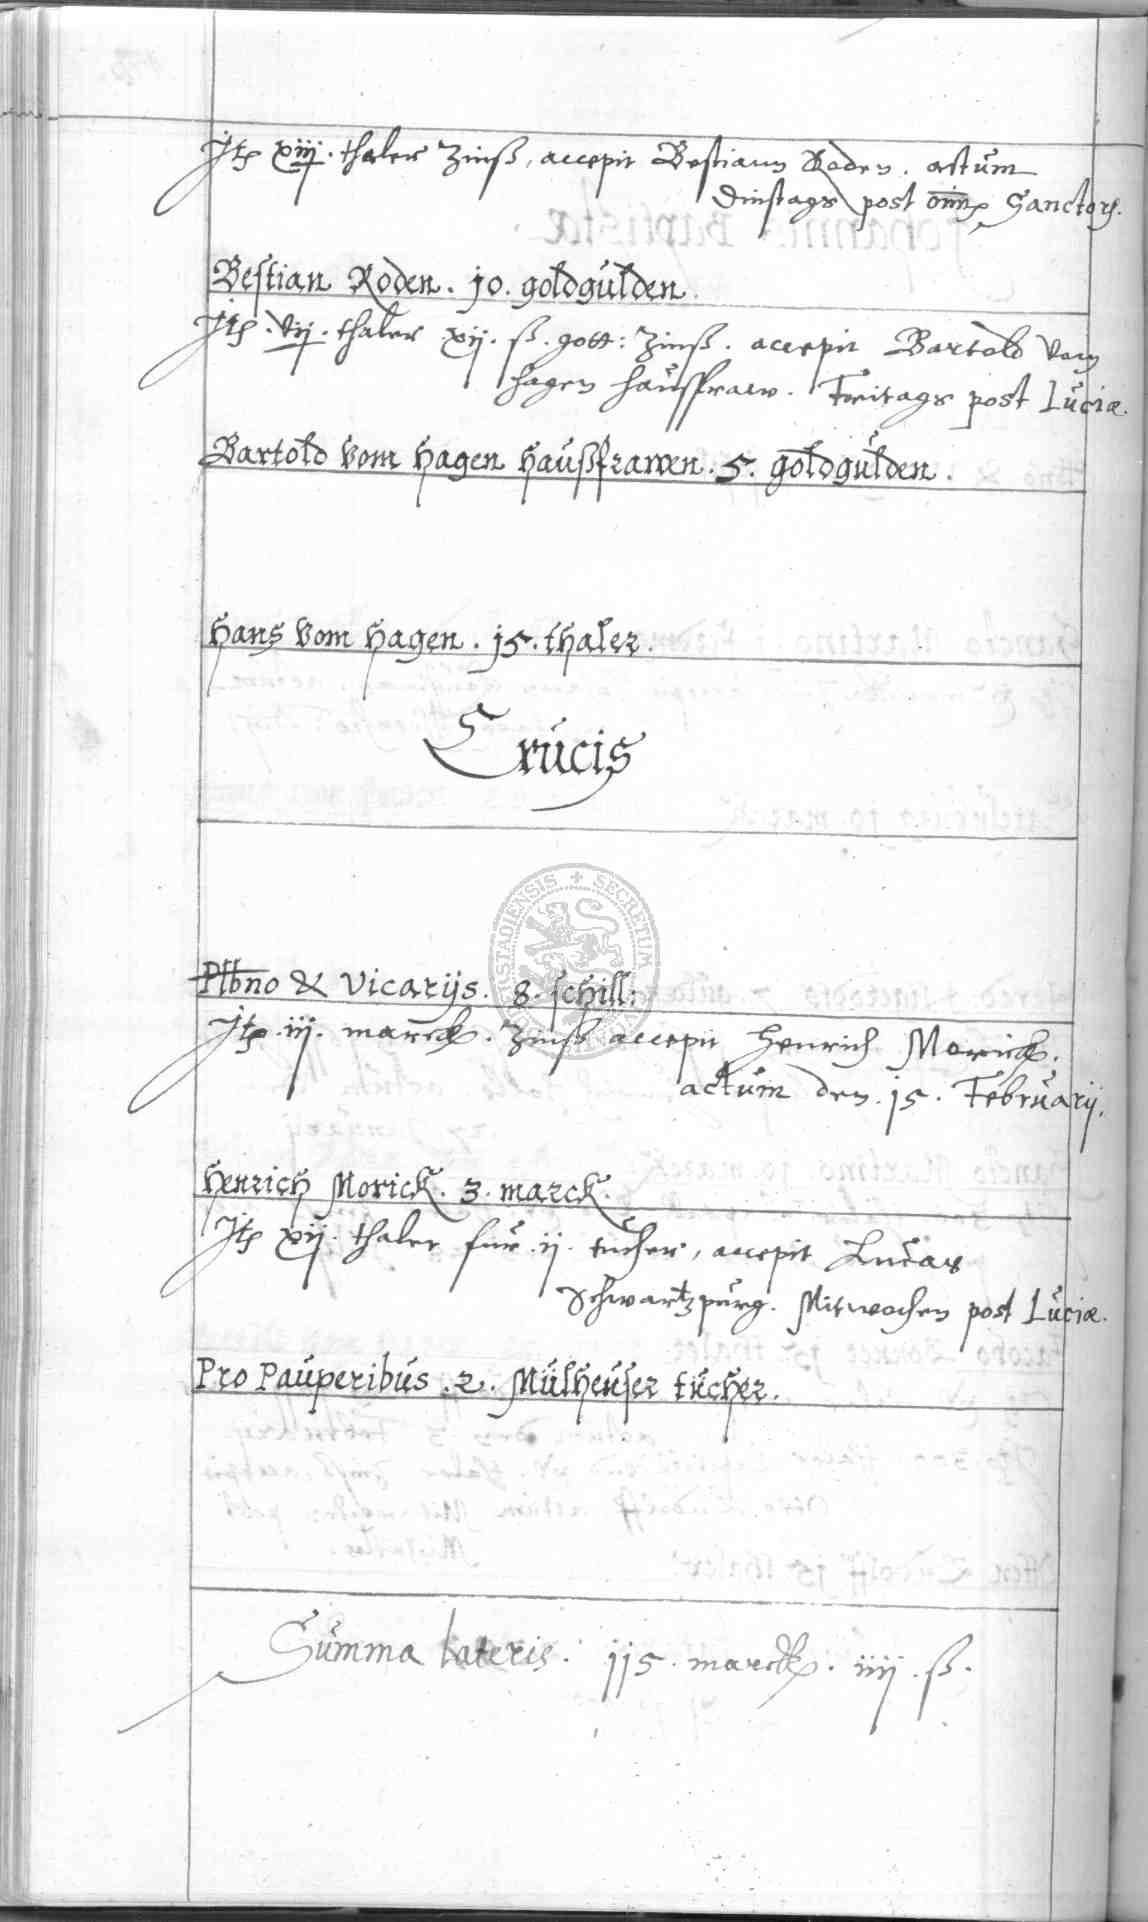 Jtē xiij. thaler Zinß, accepit Bestiann Roden. actum
Dinstags post omniū Sanctorū.
Bestian Roden. jo. goldgülden.
Jtē. vij. thaler xij. ß. gott: Zinß. accepit Bartold vom
Hagen Haussfraw. Freitags post Luciæ.
Bartold vom Hagen Haußfrawen. 5. goldgülden.
Hans vom Hagen. j5. thaler.
Crucis
Plbno & Vicarijs. 8. schill:
Jtē iij. marck. Zinß accepit Henrich Morick.
actum den j5. Februarij.
Henrich Morick. 3. marck.
Jtē xij. thaler für ij. tucher, accepit Lucas
Schwartzpurg. Mitwochen post Luciæ.
Pro Pauperibus. 2. Mülheuser tücher.
Summa Lateris: jj5. marck. iiij. ß.
SECRETUM